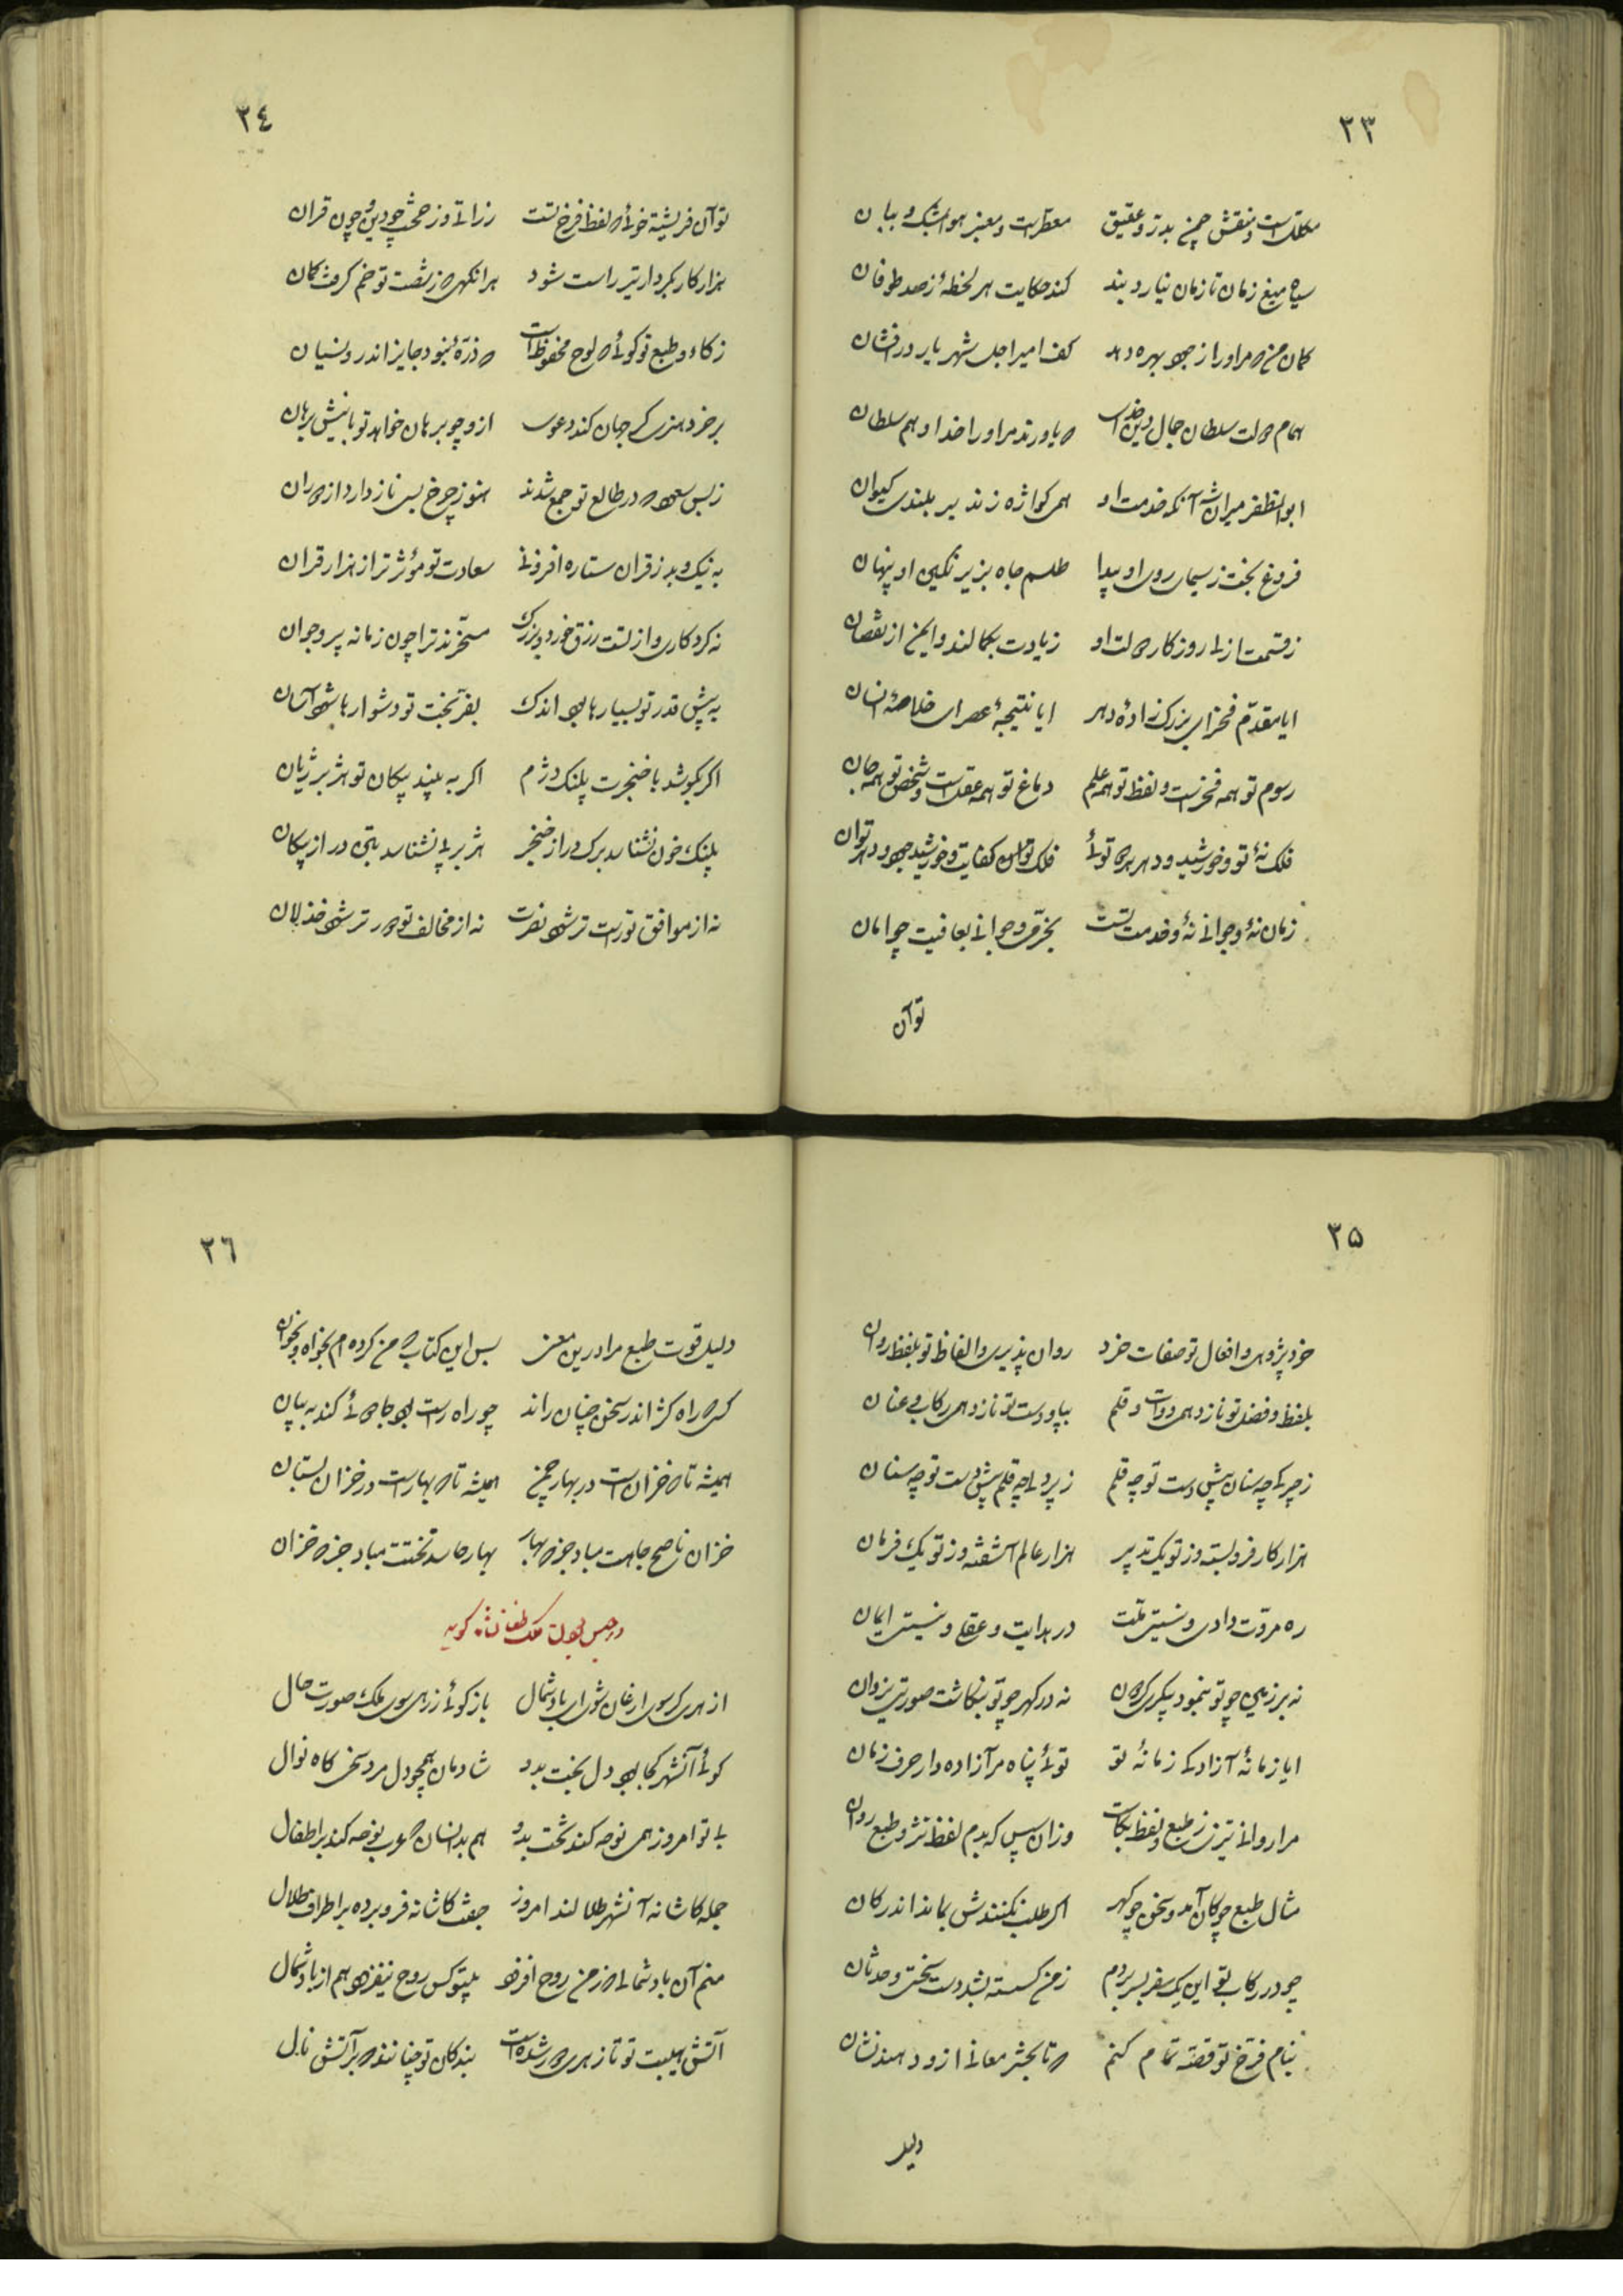 ٢٣
مکللست و منقش چمن بدر و عقیق معطرست و معنبر هوا بمشک و ببان
سیاه میغ زمان تا زمان نیارد بند کند حکایت هر لحظهٔ ز صد طوفان
کمان من که مر او را ز جود بهره دهد کف امیر اجل شهریار درافشان
همام دولت سلطان جمال دین خداست که یاورند مر او را خدا و هم سلطان
ابو المظفر میرانشه آنکه خدمت او همی کوازه زند بر بلندی کیوان
فروغ بخت ز سیمای روی او پیدا طلسم جاه بزیر نکین او پنهان
ز قسمت ازلی روزکار دولت او زیادت بکمالند و ایمن از نقصان
ایا مقدم فخر ای بزرک زادهٔ دهر ایا نتیجهٔ عصر ای خلاصهٔ انسان
رسوم تو همه فخرست و لفظ تو همه علم دماغ تو همه عقلست و شخص تو همه جان
فلک نهٔ تو و خورشید و دهر هر سه توئی فلک توان کفایت و خورشید جود و دهر توان
زمان نهٔ و جوانی نهٔ و خدمت تست بخرمی و جوانی بعافیت چو امان
توآن
٢٤
تو آن فریشته خوئی که لفظ فرخ تست ز راتی و ز حجت چو دین و چون قران
هزار کار بکردار تیر راست شود هر انکهی که ز شصت تو خم کرفت کمان
زکاء و طبع تو کوئی که لوح محفوظست که ذرهٔ نبود جایز اندرو نسیان
بر خرد هنرت کر جهان کند دعوی ازو چو برهان خواهد تو باشیش برهان
ز بس سعود که در طالع تو جمع شدند هنوز چرخ بسی ناز دارد از دوران
به نیک و بد ز قران ستاره افزونی سعادت تو مؤثرتر از هزار قران
نه کردکاری و از تست رزق خورد و بزرک مسخرند ترا چون زمانه پیر و جوان
به پیش قدر تو بسیارها بود اندک بفر بخت تو دشوارها شود آسان
اکر بکوشد با خنجرت پلنک دژم اکر به بیند پیکان تو هژبر ژیان
پلنک خون نشناسد برک در از خنجر هژبر پی نشناسد بتن در از پیکان
نه از موافق تو راست تر شود نصرت نه از مخالف تو دورتر شود خذلان
٢٥
خرد پژوهی و افعال تو صفات خرد روان پذیری و الفاظ تو بلفظ روان
بلفظ و فضل تو نازد همی دوات و قلم بپا و دست تو نازد همی رکاب و عنان
ز چیرکی چه سنان پیش دست تو چه قلم ز پردلی چه قلم پیش دست تو چه سنان
هزار کار فرو بسته وز تو یک تدبیر هزار عالم آشفته وز تو یک فرمان
ره مروت دادی و نیستی ملت در هدایت و عقلی و نیستی ایمان
نه بر زمین چو تو بنمود پیکری کردون نه در کهر چو تو بنکاشت صورتی یزدان
ایا زمانهٔ آزادکی زمانهٔ تو توئی پناه مر آزاده را ز حرف زمان
مرا روانی تیزی ز طبع و لفظ بکاست وزان سپس که بدم لفظ نثر و طبع روان
مثال طبع چو کان آمد و سخن چو کهر اکر طلب نکنندش بماند اندر کان
چو در رکاب تو این یک سفر بسر بردم ز من کسسته شد دست سختی و حدثان
بنام فرخ تو قصهٔ تمام کنم که تا بحشر معانی ازو دهند نشان
دلیل
٢٦
دلیل قوت طبع مرا درین معنی بس این کتاب که من کرده ام بخواه و بخوان
کسی که راه کژ اندر سخن چنان راند چو راه راست بود جادوئی کند به بیان
همیشه تا که خزانست در بهار چمن همیشه تا که بهارست در خزان بستان
خزان ناصح جاهت مباد جز که بهار بهار حاسد تختت مباد جز که خزان
در حبس بودن ملک طغانشاه کوید
از هری کر سوی ارغان شوی ای باد شمال باز کوئی ز رهی سوی ملک صورت حال
کوئی آنشهر کجا بود دل بخت بدو شادمان همچو دل مرد سخی کاه نوال
با تو امروز همی نوحه کند تخت بدو هم بدانسان که عرب نوحه کند بر اطفال
جمله کاشانه آنشهر طلالند امروز جفت کاشانه فرو برده بر اطراف طلال
منم آن باد شمالی که ز من روح افزود بیتو کس روح نیفزود هم از باد شمال
آتش هیبت تو تا ز هری دور شده است بندکان تو چنانند که بر آتش نال